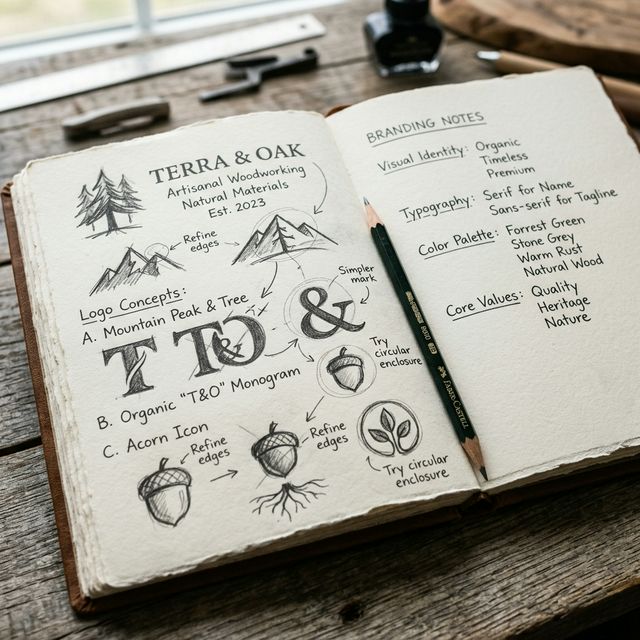 TERRA & OAK
Artisanal Woodworking
Natural Materials
Est. 2023
Refine
edges
Logo Concepts:
A. Mountain Peak & Tree
Simpler
mark
T T&O &
Try
circular
enclosure
B. Organic "T&O" Monogram
C. Acorn Icon
Refine
edges
Refine
edges
Try circular
enclosure
BRANDING NOTES
Visual Identity: Organic
Timeless
Premium
Typography: Serif for Name
Sans-serif for Tagline
Color Palette: Forrest Green
Stone Grey
Warm Rust
Natural Wood
Core Values: Quality
Heritage
Nature